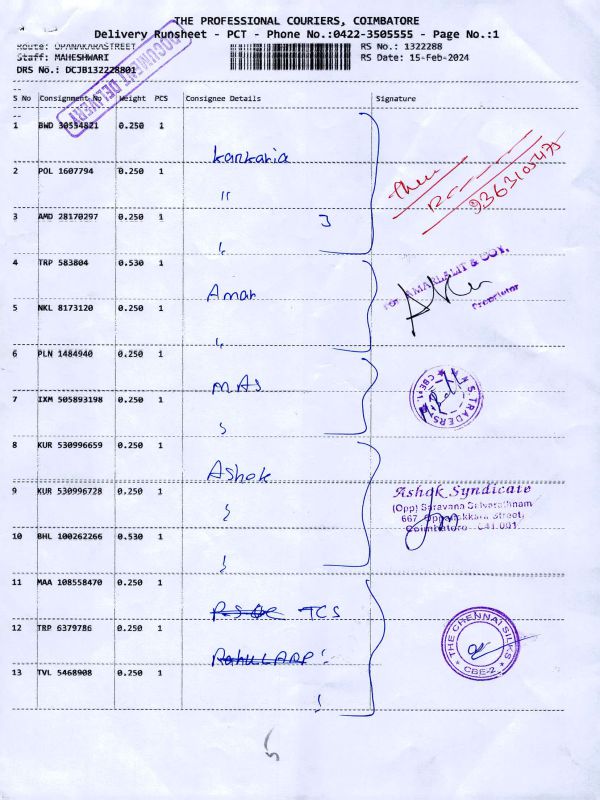 THE PROFESSIONAL COURIERS, COIMBATORE
Delivery Runsheet - PCT - Phone No.:0422-3505555 - Page No.:1
Route: OPANAKARASTREET
RS No.: 1322288
Staff: MAHESHWARI
RS Date: 15-Feb-2024
DRS No.: DCJB132228801
DOCUMENT DELIVERY
S No Consignment No Weight PCS Consignee Details Signature
1 BWD 30554821 0.250 1
Kankaria
2 POL 1607794 0.250 1
"
9363105475
3 AMD 28170297 0.250 1
4 TRP 583804 0.530 1
Amar
For AMARLALIT & COY.
Proprietor
5 NKL 8173120 0.250 1
6 PLN 1484940 0.250 1
MAS
TRADERS
CBE-1
7 IXM 505893198 0.250 1
8 KUR 530996659 0.250 1
Ashok
9 KUR 530996728 0.250 1
Ashok Syndicate
(Opp) Saravana Selvarathnam
667, Oppanakkara Street,
Coimbatore - 641 001
10 BHL 100262266 0.530 1
11 MAA 108558470 0.250 1
TCS
12 TRP 6379786 0.250 1
THE CHENNAI SILKS
CBE-2
13 TVL 5468908 0.250 1